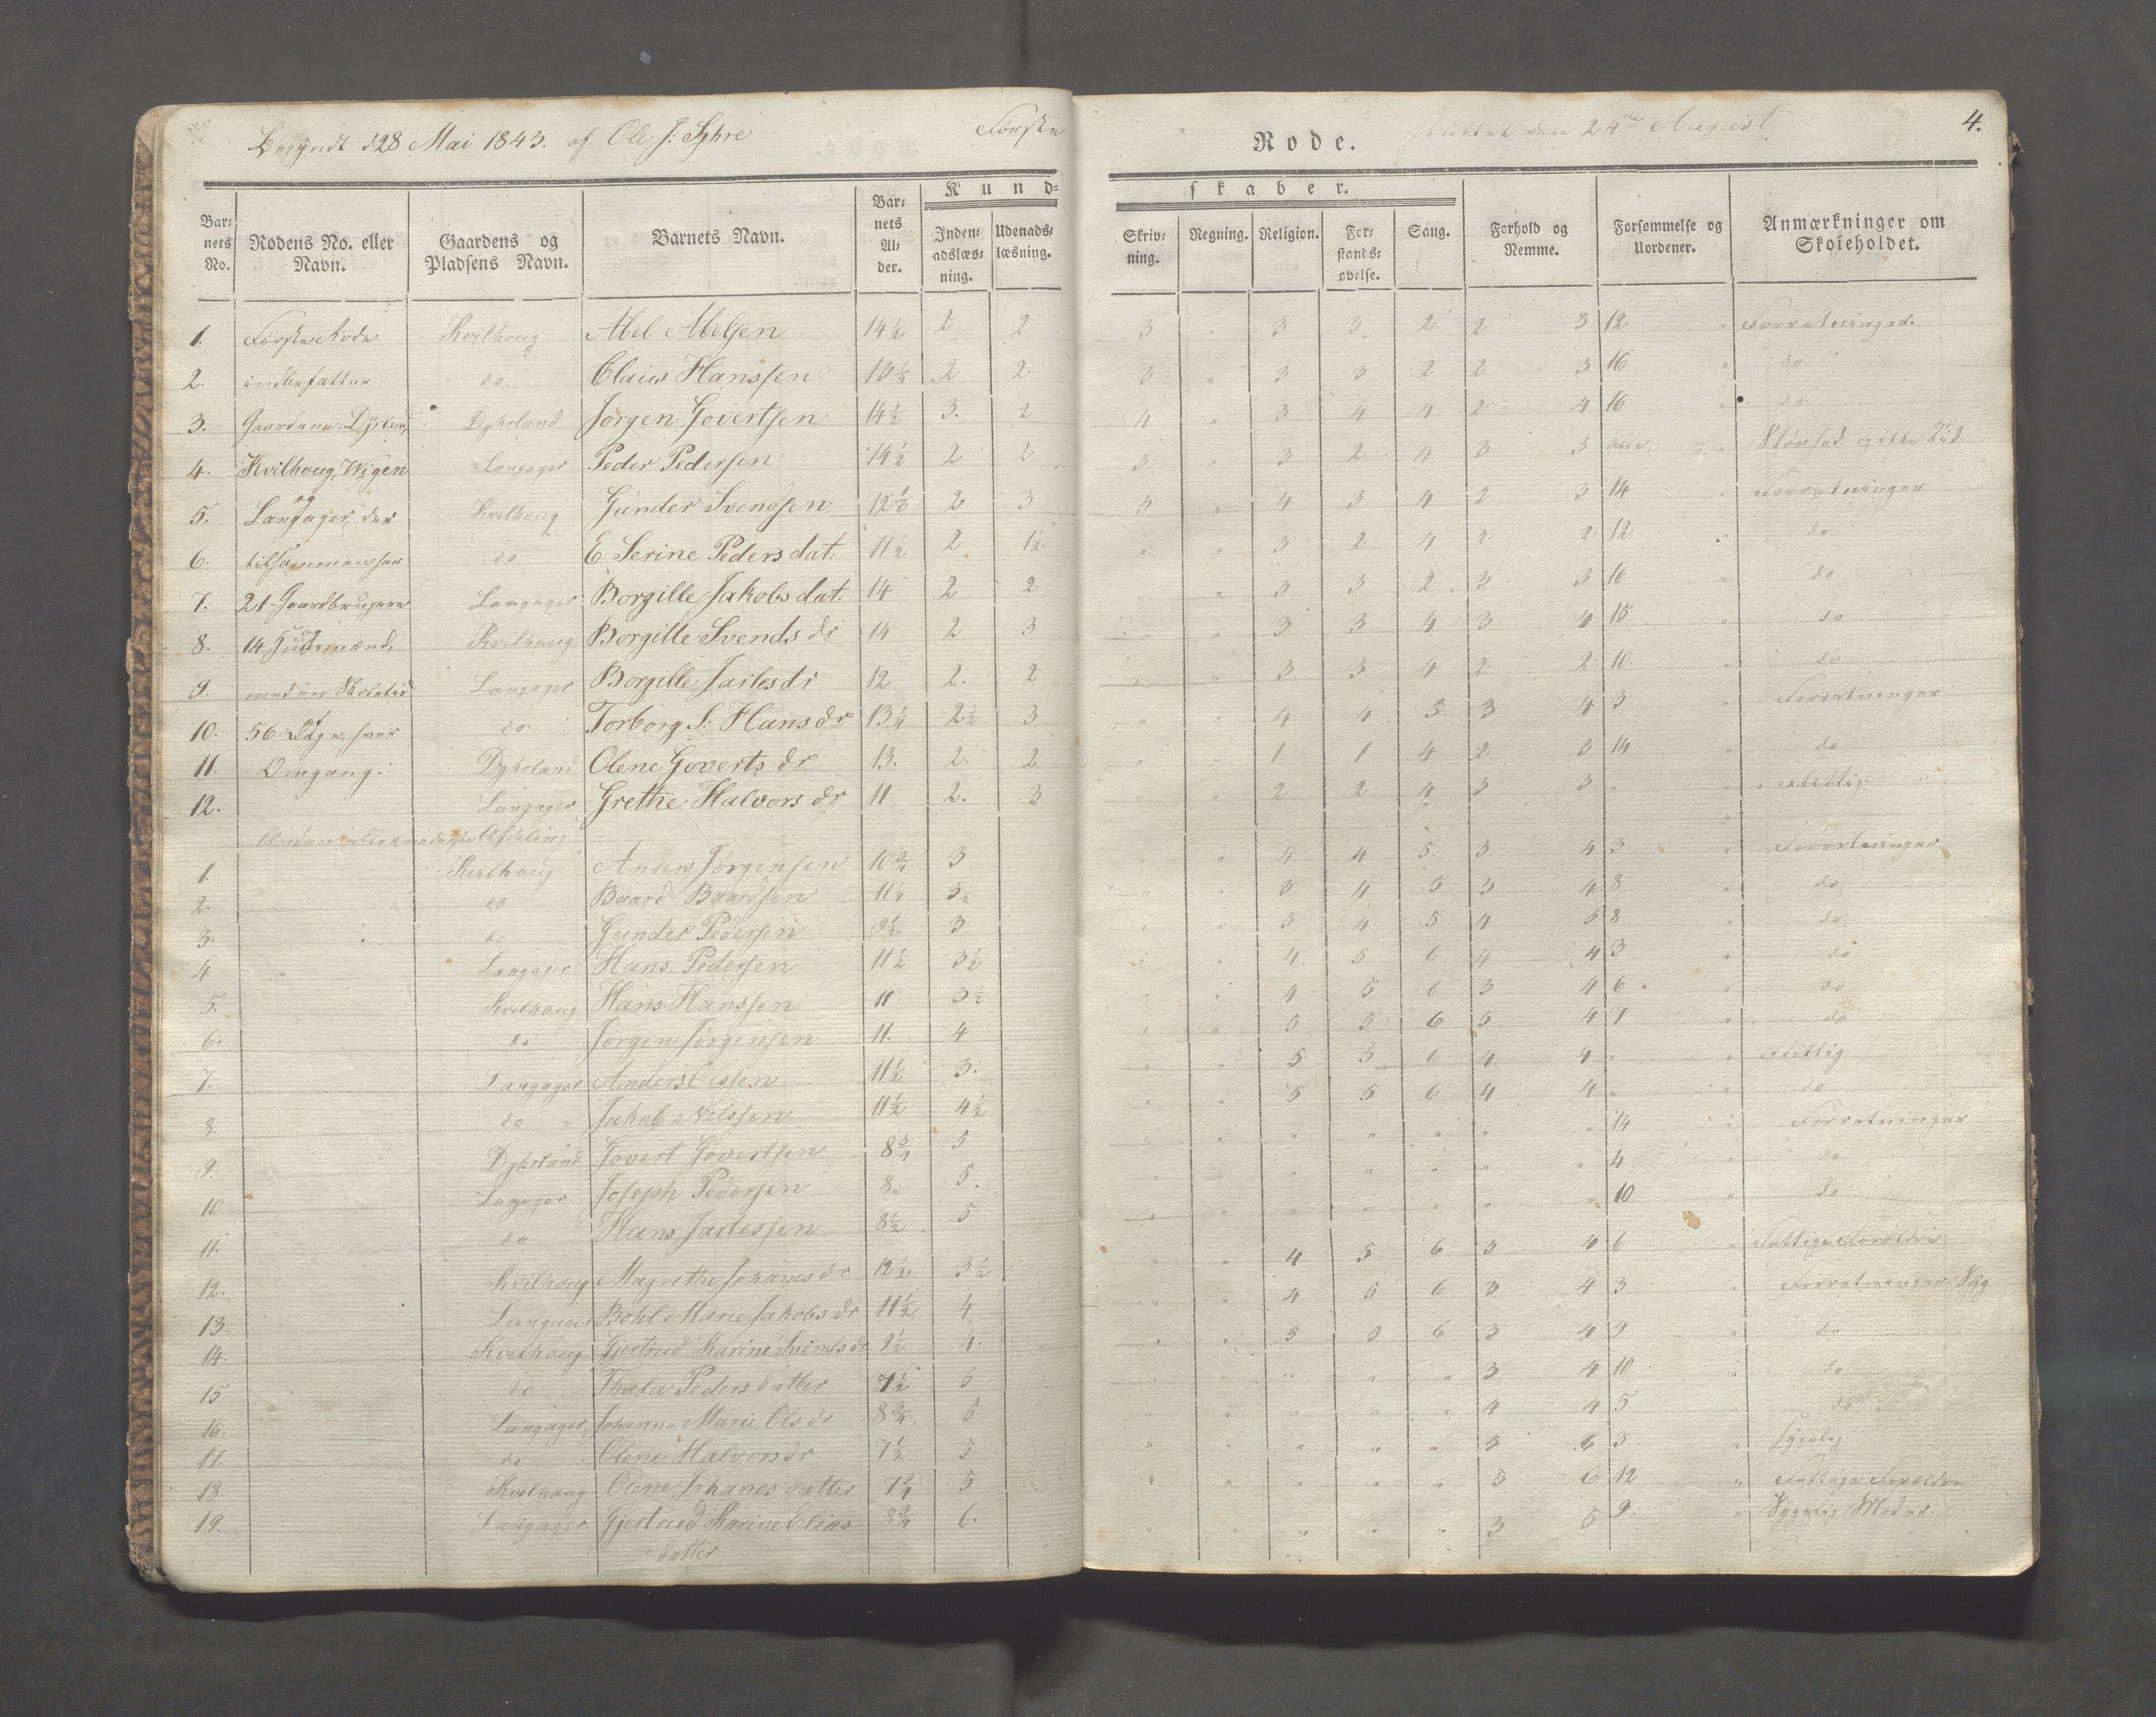 Begyndt d 28 Mai 1843. af Ole J: Sphre Første Rode. sluttet den 24de August 4.
Kundskaber.
Barnets No. Rodens No. eller Navn. Gaardens og Pladsens Navn. Barnets Navn. Barnets Alder. Indenadslæsning. Udenadslæsning. Skrivning. Regning. Religion. Forstandsøvelse. Sang. Forhold og Nemme. Forsømmelse og Uordener. Anmærkninger om Skoleholdet.
1. Første Rode Kvilhoug Abel Abelsen 14½ 2 2 3 " 3 3 2 2 3 12 " Forretninger.
2. indbefatter do. Claus Hanssen 13½ 2 2 3 " 3 3 2 2 3 16 " do
3. Gaardene: Dÿrland, Dyhrland Jörgen Govertsen 14½ 3. 2 4 " 3 4 4 2 4 16 " do
4. Kvilhoug, Wigen Langager Peder Pedersen 14½ 2 2 3 " 3 2 4 3 3
5. og Langager, der Kvilhoug Gunder Svendsen 12½ 2 3 3 " 4 3 4 2 3 14 " Forretninger
6. tilsammen har do E. Serine Pedersdat: 11½ 2 1½ " " 3 2 4 2 2 12 " do
7. 21 Gaardbrugere Langager Borgille Jakobsdat: 14 2 2 " " 3 3 2 3 3 16 " do
8. 14 Huusmænd, Kvilhoug Borgille Svends dr 14 2 3 " " 3 3 4 3 4 15 " do
9. med en Skoletid Langager Borgille Jarlesdr 12 2. 2 " " 3 3 4 2 2 10. " do
10. 56 Dage hver do Torborg S: Hansdr 13¼ 2½ 3 " " 4 4 5 3 4 3 " Forretninger
11. Omgang. Dyhrland Olene Goverts dr 13. 2. 2 " " 1 1 4 2 3 14 " do
12. Langager Grethe Halvors dr 11 2. 3 " " 2 2 4 3 3 " " flittig
Afdeling
1. Kvilhoug Anders Jörgensen 10¾ 3 " 4 4 5. 3 4 3 " Forretninger
2. do Baard Baardsen 11¼ 3½ " " 3 4 5 3 4 8 " do
3. do Gunder Pedersen 9½ 3 " " 3 4 5 4 5 8 " do
4 Langager Hans Pedersen 11½ 3½ " " 4 5 6 4 4 3 " do
5. Kvilhoug Hans Hanssen 11 3½ " " 4 5 6 3 4 6 " do
6. do Jörgen Jörgensen 11. 4 " " 5 5 6 5 4 7 " do
7. Langager Anders Olssen 11½ 3. " " 5 5 6 4 4 " " Flittig
8. do Jakob Nilssen 11½ 4½ " " 5 5 6 4 4 " " do
9. Dyhrland Govert Govertsen 8¾ 5 " " " " " " " 14 " Forretninger
10 Langager Joseph Pedersen 8. 5. " " " " " " " 4 " do
11. do Hans Jarlessen 8½ 5 " " " " " " " 10 " do
12. Kvilhoug Magrethe Johanesdr 12½ 3½ " " 4 5 6 3 4 6 " Fattige Foreldre
13. Langager Bohl Marie Jakobs dr 11½ 4 " " 4 5 6 3 4 3 " Forretninger
14. Kvilhoug Gjertrud Karine Svends dr 9½ 4. " " 5 5 6 3 4 9 " do
15 do Thala Pedersdatter 7½ 5 " " " " " 3 4 10 " do
16. Langager Johanna Marie Ols dr 8¾ 5 " " " " " 4 4 5 " do
17 do Olene Halvorsdr 7½ 5 " " " " " 5 6 3 " Sygelig
18 Kvilhoug Olene Johanes datter 7¾ 5 " " " " " 5 6 12 " Fattige Foreldre
19. Langager Gjertrud Karine Elias datter 8¾ 6. " " " " " 3 5 9. " Sygelig Moder.